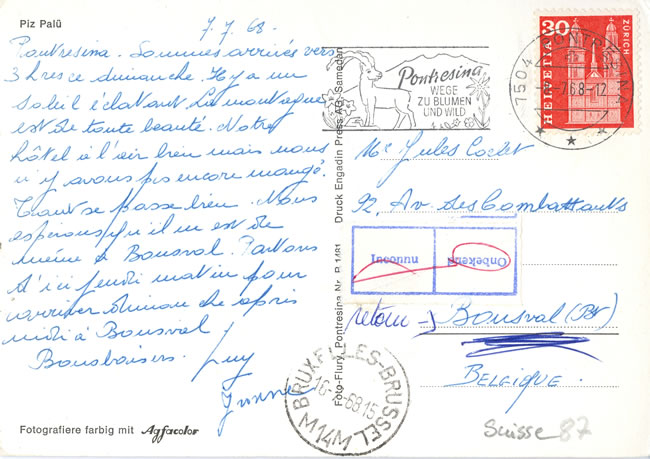 Piz Palü
7.7.68.
Pontresina. Sommes arrivés vers
3 hres ce dimanche. Il y a un
soleil éclatant. La montagne
est de toute beauté. Notre
hôtel à l'air bien mais nous
n'y avons pas encore mangé.
Tout se passe bien. Nous
espérons qu'il en est de
même à Bonsval. Partons
d'ici jeudi matin pour
arriver dimanche après
midi à Bonsval
Bons baisers. Guy
Yvonne
Fotografiere farbig mit Agfacolor
Foto-Flury, Pontresina Nr. P 1481 Druck Engadin Press AG, Samedan
Pontresina
WEGE
ZU BLUMEN
UND WILD
7504 PONTRESINA
-7.7.68.-12
30
HELVETIA
ZÜRICH
Mr Jules
92, Av. des Combattants
Onbekend
Inconnu
retour → Bonsval (Bt)
BELGIQUE.
BRUXELLES-BRUSSEL
68.15
M14M
Suisse 87